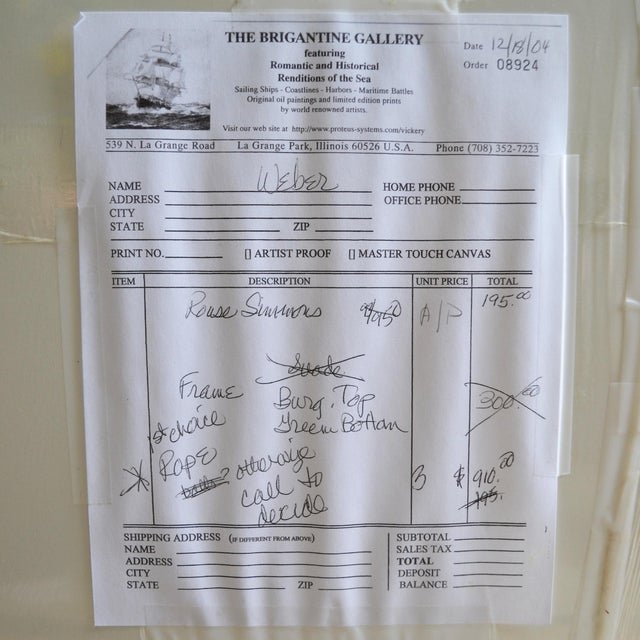 THE BRIGANTINE GALLERY
featuring
Romantic and Historical
Renditions of the Sea
Sailing Ships - Coastlines - Harbors - Maritime Battles
Original oil paintings and limited edition prints
by world renowned artists.
Visit our web site at http://www.proteus-systems.com/vickery
Date 12/18/04
Order 08924
539 N. La Grange Road La Grange Park, Illinois 60526 U.S.A. Phone (708) 352-7223
NAME Weber HOME PHONE
ADDRESS OFFICE PHONE
CITY
STATE ZIP
PRINT NO. [] ARTIST PROOF [] MASTER TOUCH CANVAS
ITEM DESCRIPTION UNIT PRICE TOTAL
Rouse Simmons A/P 195.00
Suede
Frame Burg. Top 300.00
1st choice Green Bottom
Rope otherwize 3 $ 910.00
call to 195.
decide
SHIPPING ADDRESS (IF DIFFERENT FROM ABOVE) SUBTOTAL
NAME SALES TAX
ADDRESS TOTAL
CITY DEPOSIT
STATE ZIP BALANCE